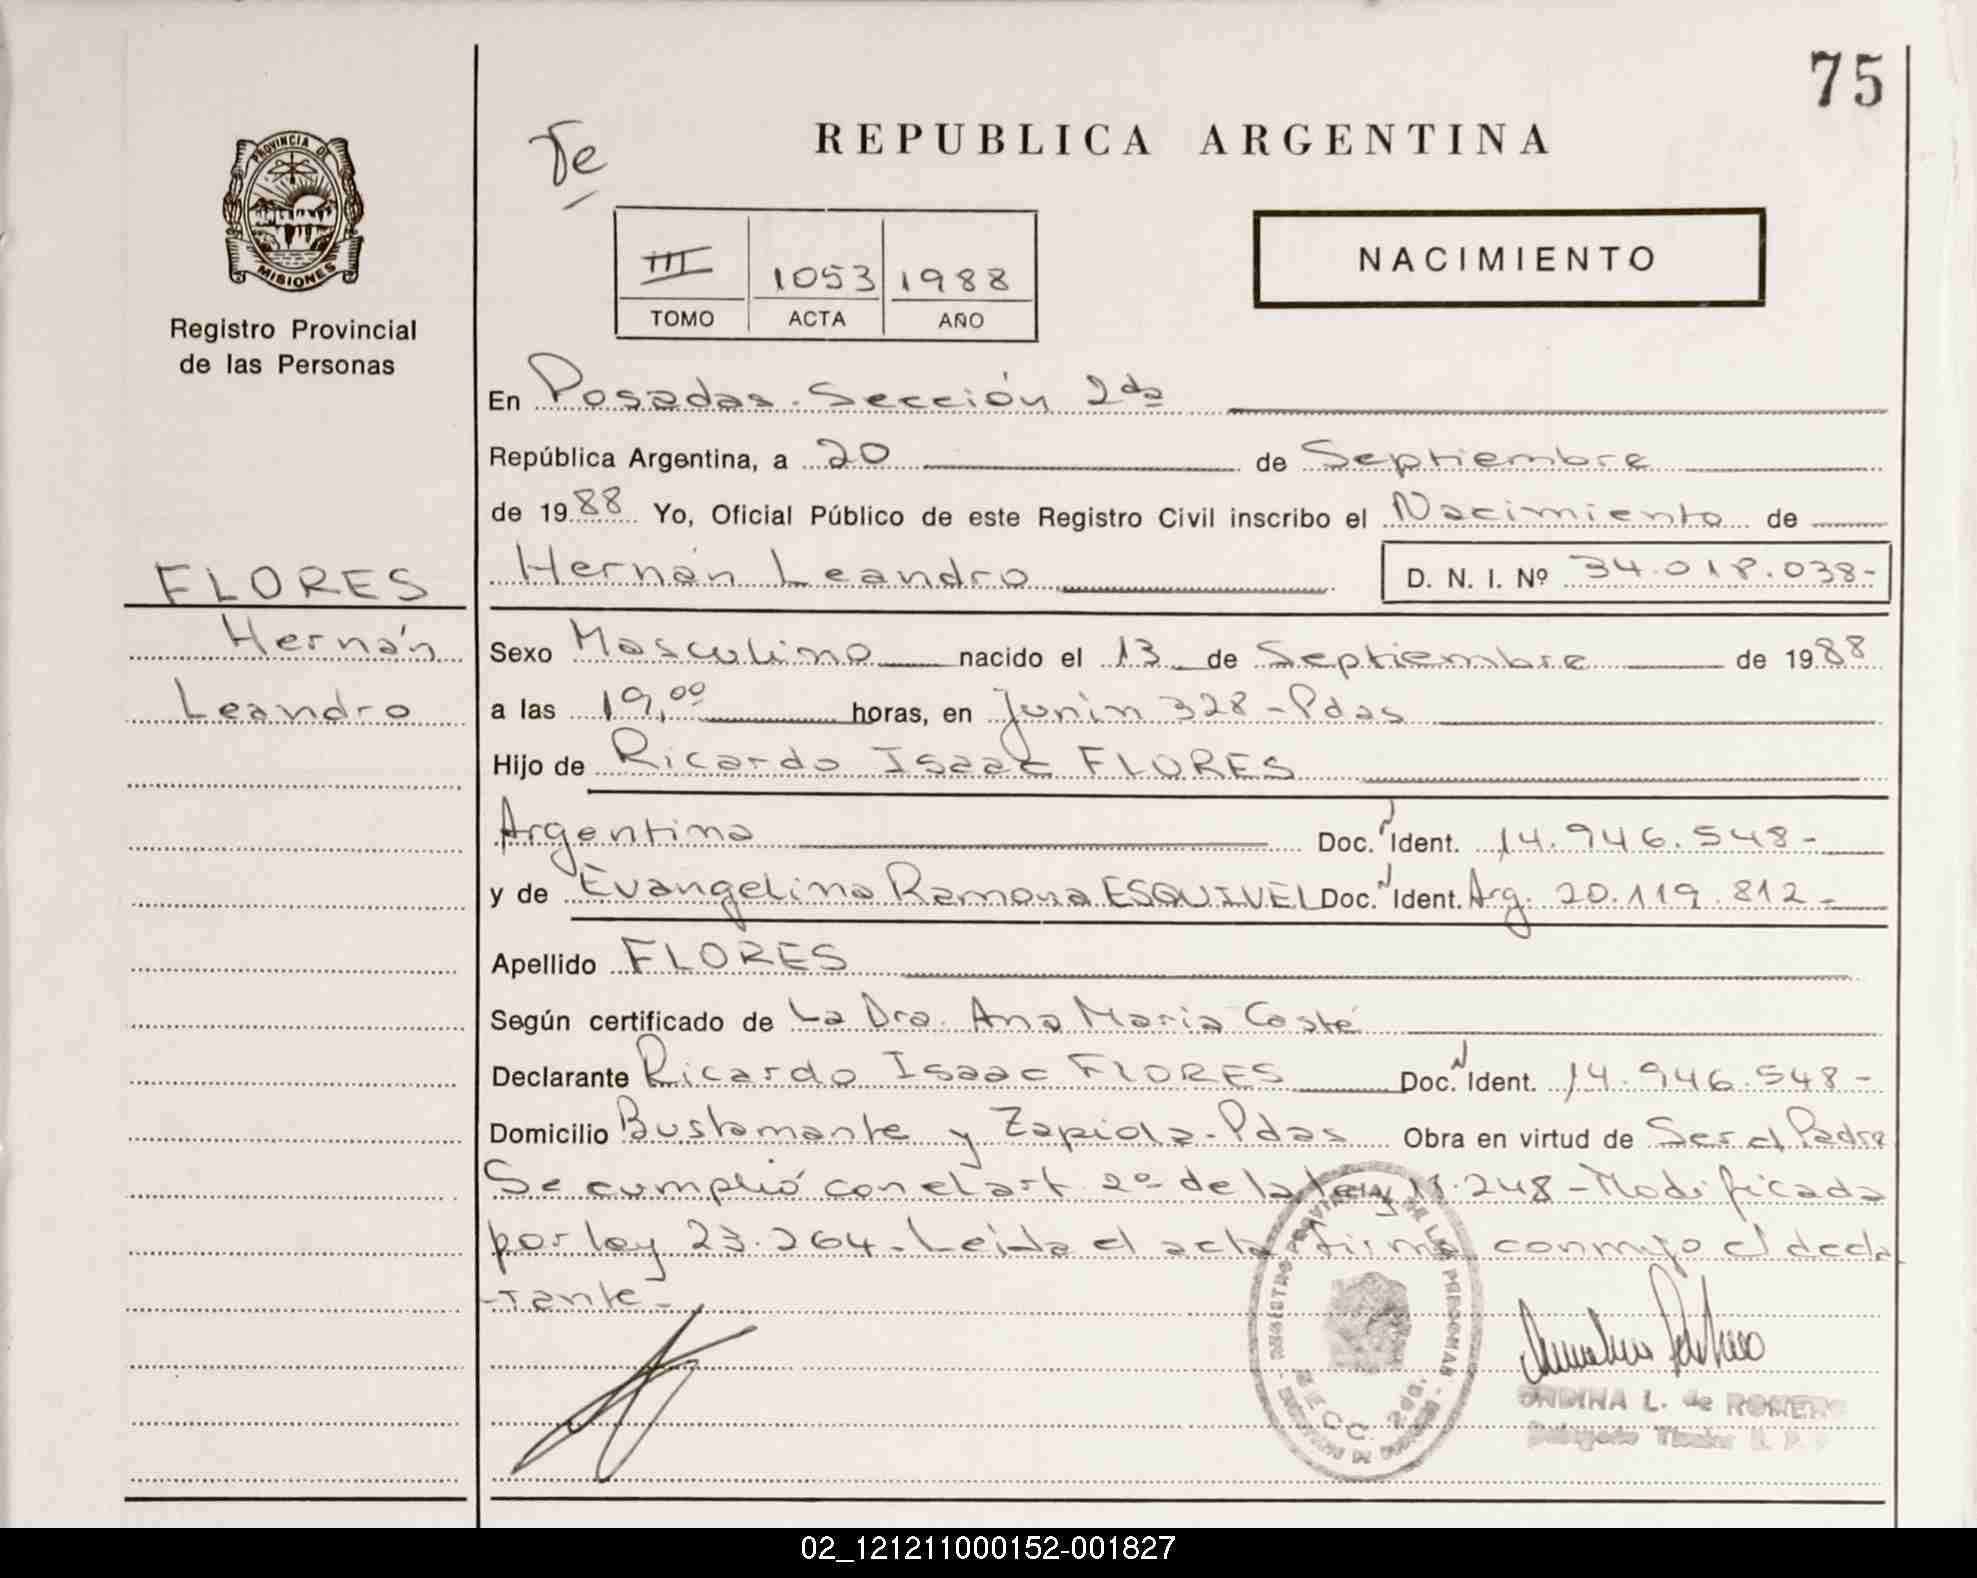 75
REPUBLICA ARGENTINA
PROVINCIA DE
MISIONES
Registro Provincial
de las Personas
III 1053 1988
TOMO ACTA AÑO
NACIMIENTO
En Posadas - Sección 2da
República Argentina, a 20 de Septiembre
de 1988 Yo, Oficial Público de este Registro Civil inscribo el Nacimiento de
Hernán Leandro D. N. I. Nº 34.018.038-
FLORES
Hernán
Leandro
Sexo Masculino nacido el 13 de Septiembre de 1988
a las 19,00 horas, en Junín 328 - Pdas
Hijo de Ricardo Isaac FLORES
Argentina Doc. Ident. 14.946.548-
y de Evangelina Ramona ESQUIVEL Doc. Ident. Arg. 20.119.812-
Apellido FLORES
Según certificado de La Dra. Ana Maria Costé
Declarante Ricardo Isaac FLORES Doc. Ident. 14.946.548-
Domicilio Bustamante y Zapiola - Pdas Obra en virtud de Ser el Padre
Se cumplió con el art 2º de la ley 11.248 - Modificada
por ley 23.264 - Leída el acta firma conmigo el decla
-rante-
REGISTRO PROVINCIAL DE LAS PERSONAS
SECC. 2da.
ORDINA L. de ROMERO
Delegado Titular
02_121211000152-001827